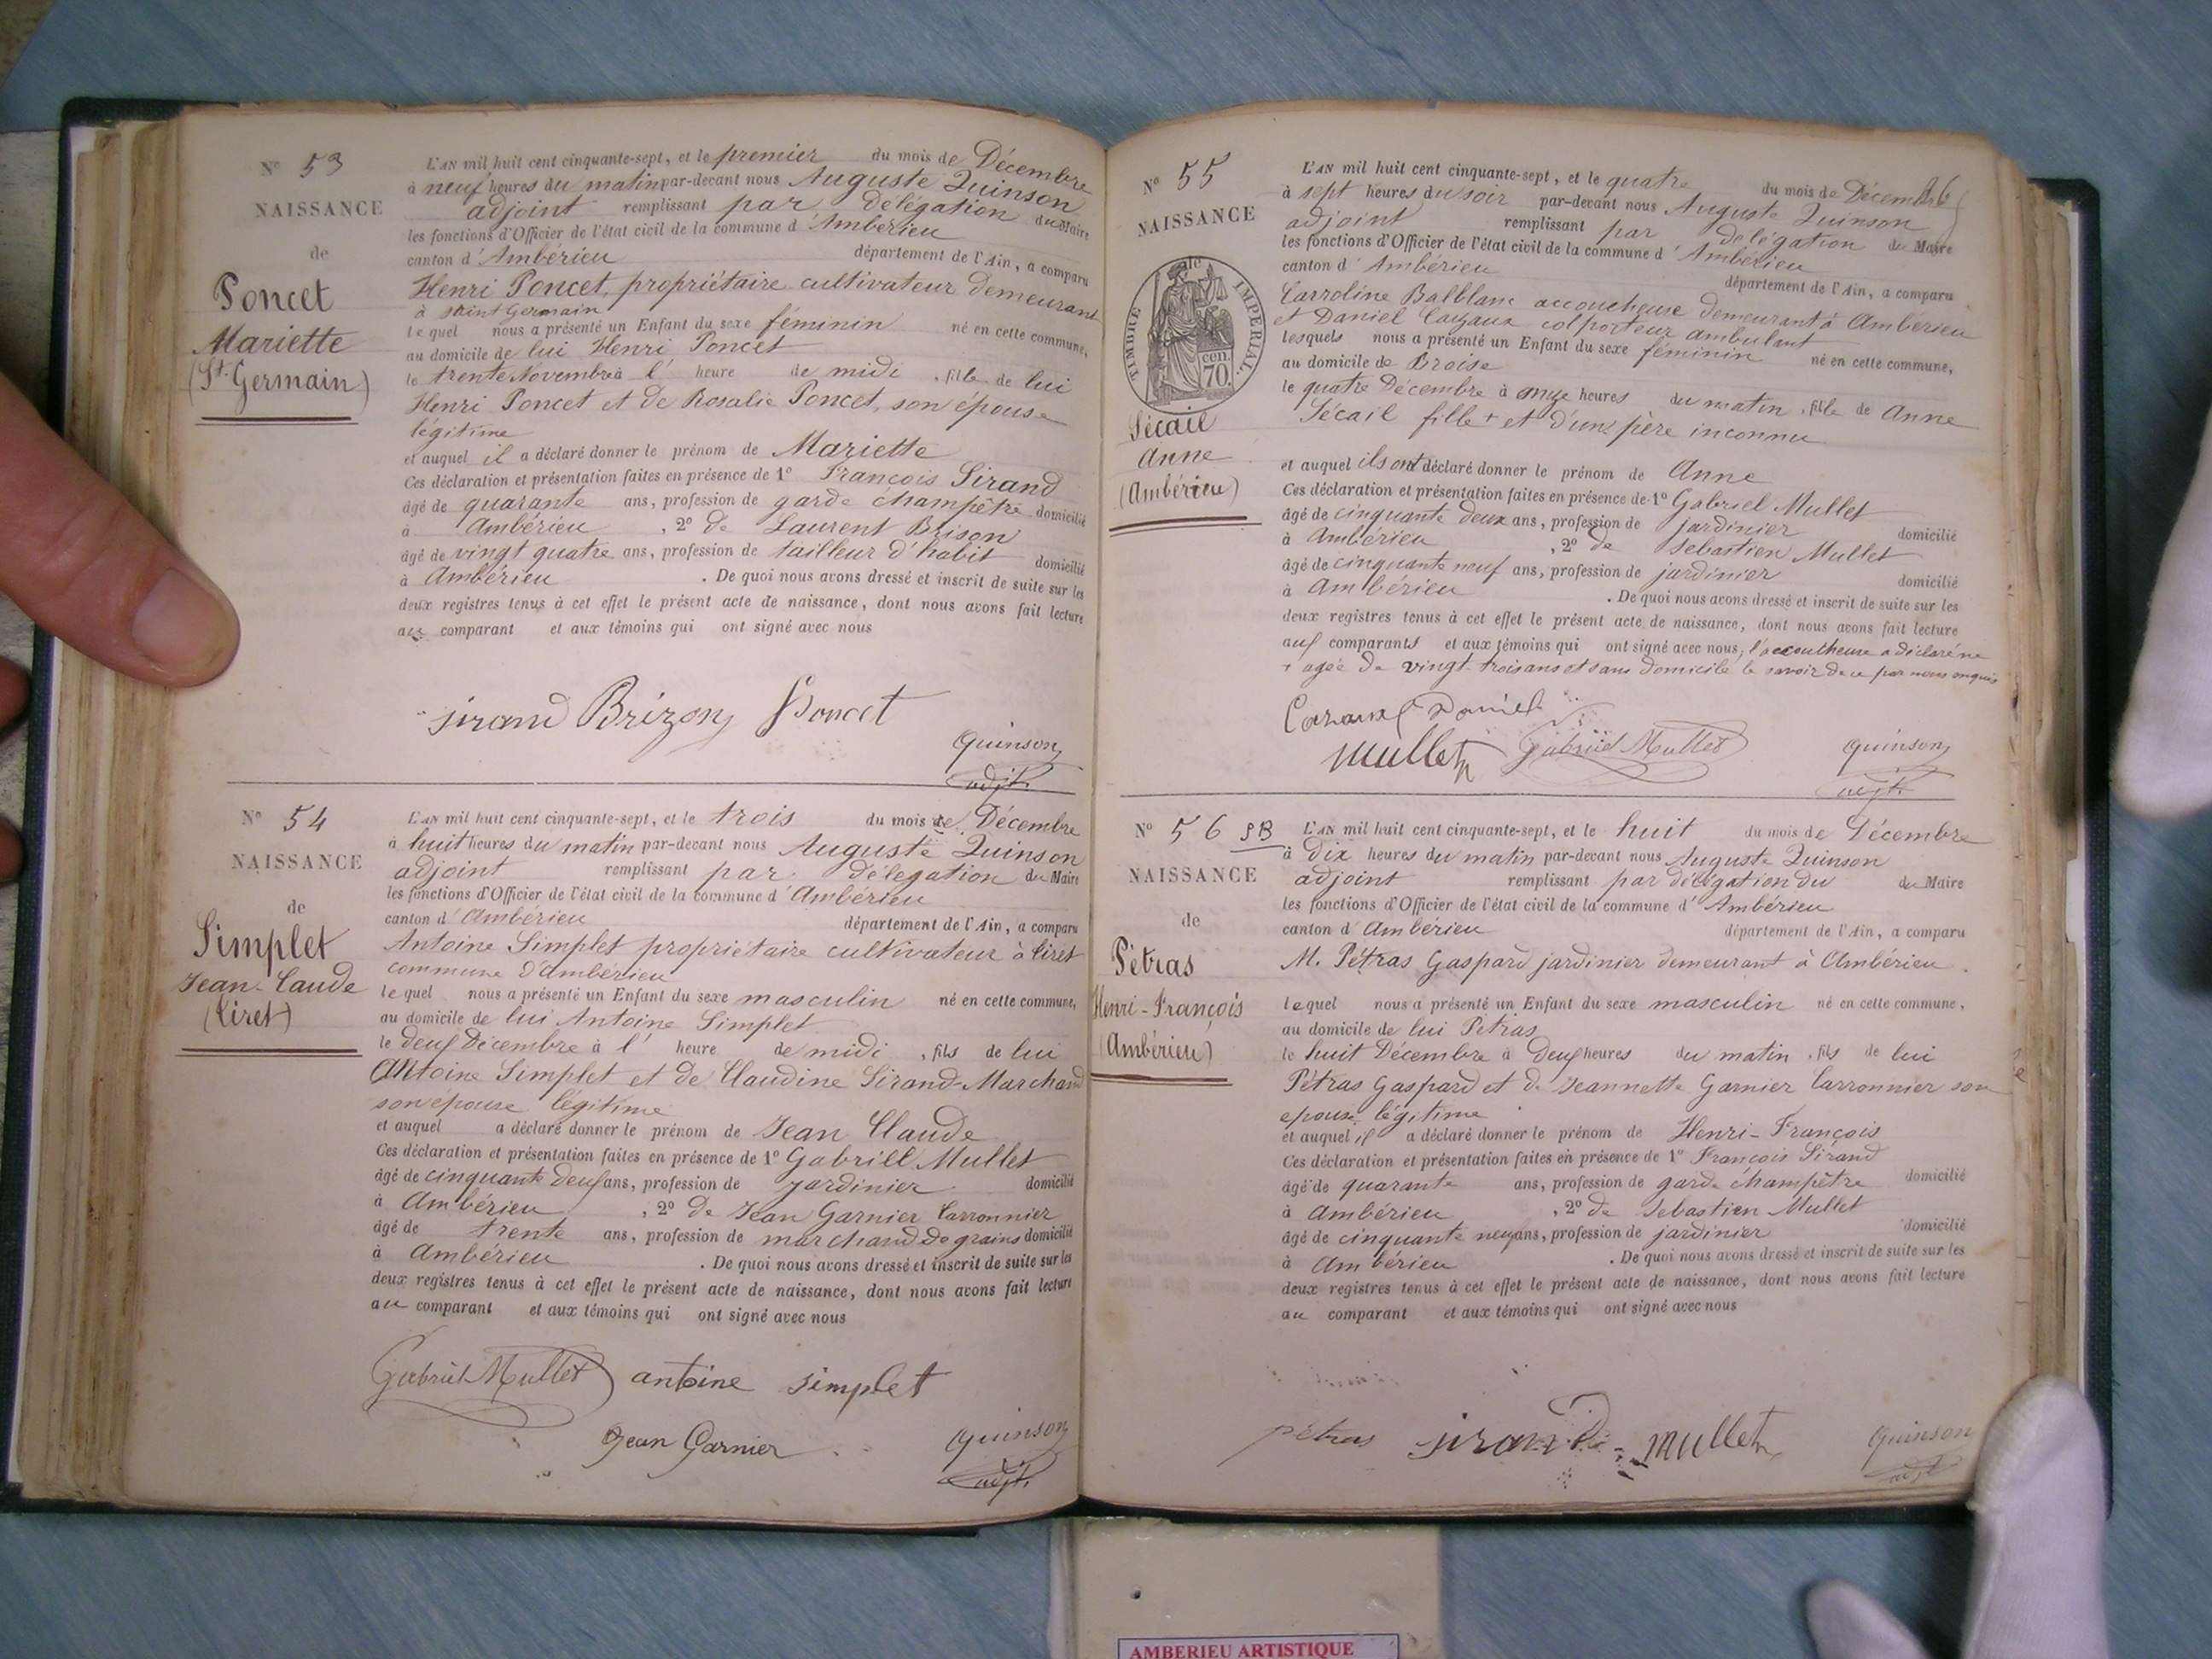 N° 53
NAISSANCE
de
Poncet
Mariette
(St. Germain)
L'AN mil huit cent cinquante-sept, et le premier du mois de Décembre
à neuf heures du matin par-devant nous Auguste Quinson
adjoint remplissant par délégation du Maire
les fonctions d'Officier de l'état civil de la commune d'Ambérieu
canton d'Ambérieu département de l'Ain, a comparu
Henri Poncet, propriétaire cultivateur demeurant
à saint Germain
lequel nous a présenté un Enfant du sexe féminin né en cette commune,
au domicile de lui Henri Poncet
le trente Novembre à l' heure de midi, fille de lui
Henri Poncet et de Rosalie Poncet, son épouse
légitime
et auquel il a déclaré donner le prénom de Mariette
Ces déclaration et présentation faites en présence de 1° François Sirand
âgé de quarante ans, profession de garde champêtre domicilié
à Ambérieu, 2° de Laurent Brison
âgé de vingt quatre ans, profession de tailleur d'habit domicilié
à Ambérieu. De quoi nous avons dressé et inscrit de suite sur les
deux registres tenus à cet effet le présent acte de naissance, dont nous avons fait lecture
au comparant et aux témoins qui ont signé avec nous
Sirand Brizon Poncet
Quinson
adjt.
N° 54
NAISSANCE
de
Simplet
Jean-Claude
(Tiret)
L'AN mil huit cent cinquante-sept, et le trois du mois de Décembre
à huit heures du matin par-devant nous Auguste Quinson
adjoint remplissant par délégation du Maire
les fonctions d'Officier de l'état civil de la commune d'Ambérieu
canton d'Ambérieu département de l'Ain, a comparu
Antoine Simplet propriétaire cultivateur à tiret
commune d'ambérieu
lequel nous a présenté un Enfant du sexe masculin né en cette commune,
au domicile de lui Antoine Simplet
le deux Décembre à l' heure de midi, fils de lui
Antoine Simplet et de Claudine Sirand-Marchand
son epouse légitime
et auquel a déclaré donner le prénom de Jean Claude
Ces déclaration et présentation faites en présence de 1° Gabriell Mullet
âgé de cinquante deux ans, profession de jardinier domicilié
à Ambérieu, 2° de Jean Garnier Carronnier
âgé de trente ans, profession de marchand de grains domicilié
à Ambérieu. De quoi nous avons dressé et inscrit de suite sur les
deux registres tenus à cet effet le présent acte de naissance, dont nous avons fait lecture
au comparant et aux témoins qui ont signé avec nous
Gabriel Mullet antoine simplet
Jean Garnier
Quinson
adjt.
N° 55
NAISSANCE
de
TIMBRE IMPERIAL
70 cen.
Sécail
Anne
(Ambérieu)
L'AN mil huit cent cinquante-sept, et le quatre du mois de Décembre
à sept heures du soir par-devant nous Auguste Quinson
adjoint remplissant par délégation du Maire
les fonctions d'Officier de l'état civil de la commune d'Ambérieu
canton d'Ambérieu département de l'Ain, a comparu
Carroline Balblanc accoucheuse demeurant à Ambérieu
et Daniel Cazaux colporteur ambulant
lesquels nous a présenté un Enfant du sexe féminin né en cette commune,
au domicile de Broise
le quatre Décembre à onze heures du matin, fille de Anne
Sécail fille + et d'une père inconnu
et auquel ils ont déclaré donner le prénom de Anne
Ces déclaration et présentation faites en présence de 1° Gabriel Mullet
âgé de cinquante deux ans, profession de jardinier domicilié
à Ambérieu, 2° de Sebastien Mullet
âgé de cinquante neuf ans, profession de jardinier domicilié
à Ambérieu. De quoi nous avons dressé et inscrit de suite sur les
deux registres tenus à cet effet le présent acte de naissance, dont nous avons fait lecture
aux comparants et aux témoins qui ont signé avec nous, l'accoucheuse a déclaré ne
+ agée de vingt-trois ans et sans domicile le savoir de ce par nous enquis
Cazaux Daniel
Mullet Gabriel Mullet
Quinson
adjt.
N° 56 SB
NAISSANCE
de
Pétras
Henri-François
(Ambérieu)
L'AN mil huit cent cinquante-sept, et le huit du mois de Décembre
à dix heures du matin par-devant nous Auguste Quinson
adjoint remplissant par délégation du du Maire
les fonctions d'Officier de l'état civil de la commune d'Ambérieu
canton d'Ambérieu département de l'Ain, a comparu
M. Pétras Gaspard jardinier demeurant à Ambérieu.
lequel nous a présenté un Enfant du sexe masculin né en cette commune,
au domicile de lui Petras
le huit Décembre à deux heures du matin, fils de lui
Pétras Gaspard et de Jeannette Garnier Carronnier son
epouse légitime
et auquel il a déclaré donner le prénom de Henri-François
Ces déclaration et présentation faites en présence de 1° François Sirand
âgé de quarante ans, profession de garde champêtre domicilié
à Ambérieu, 2° de Sebastien Mullet
âgé de cinquante neuf ans, profession de jardinier domicilié
à Ambérieu. De quoi nous avons dressé et inscrit de suite sur les
deux registres tenus à cet effet le présent acte de naissance, dont nous avons fait lecture
au comparant et aux témoins qui ont signé avec nous
pétras Sirand Mullet
Quinson
adjt
AMBERIEU ARTISTIQUE